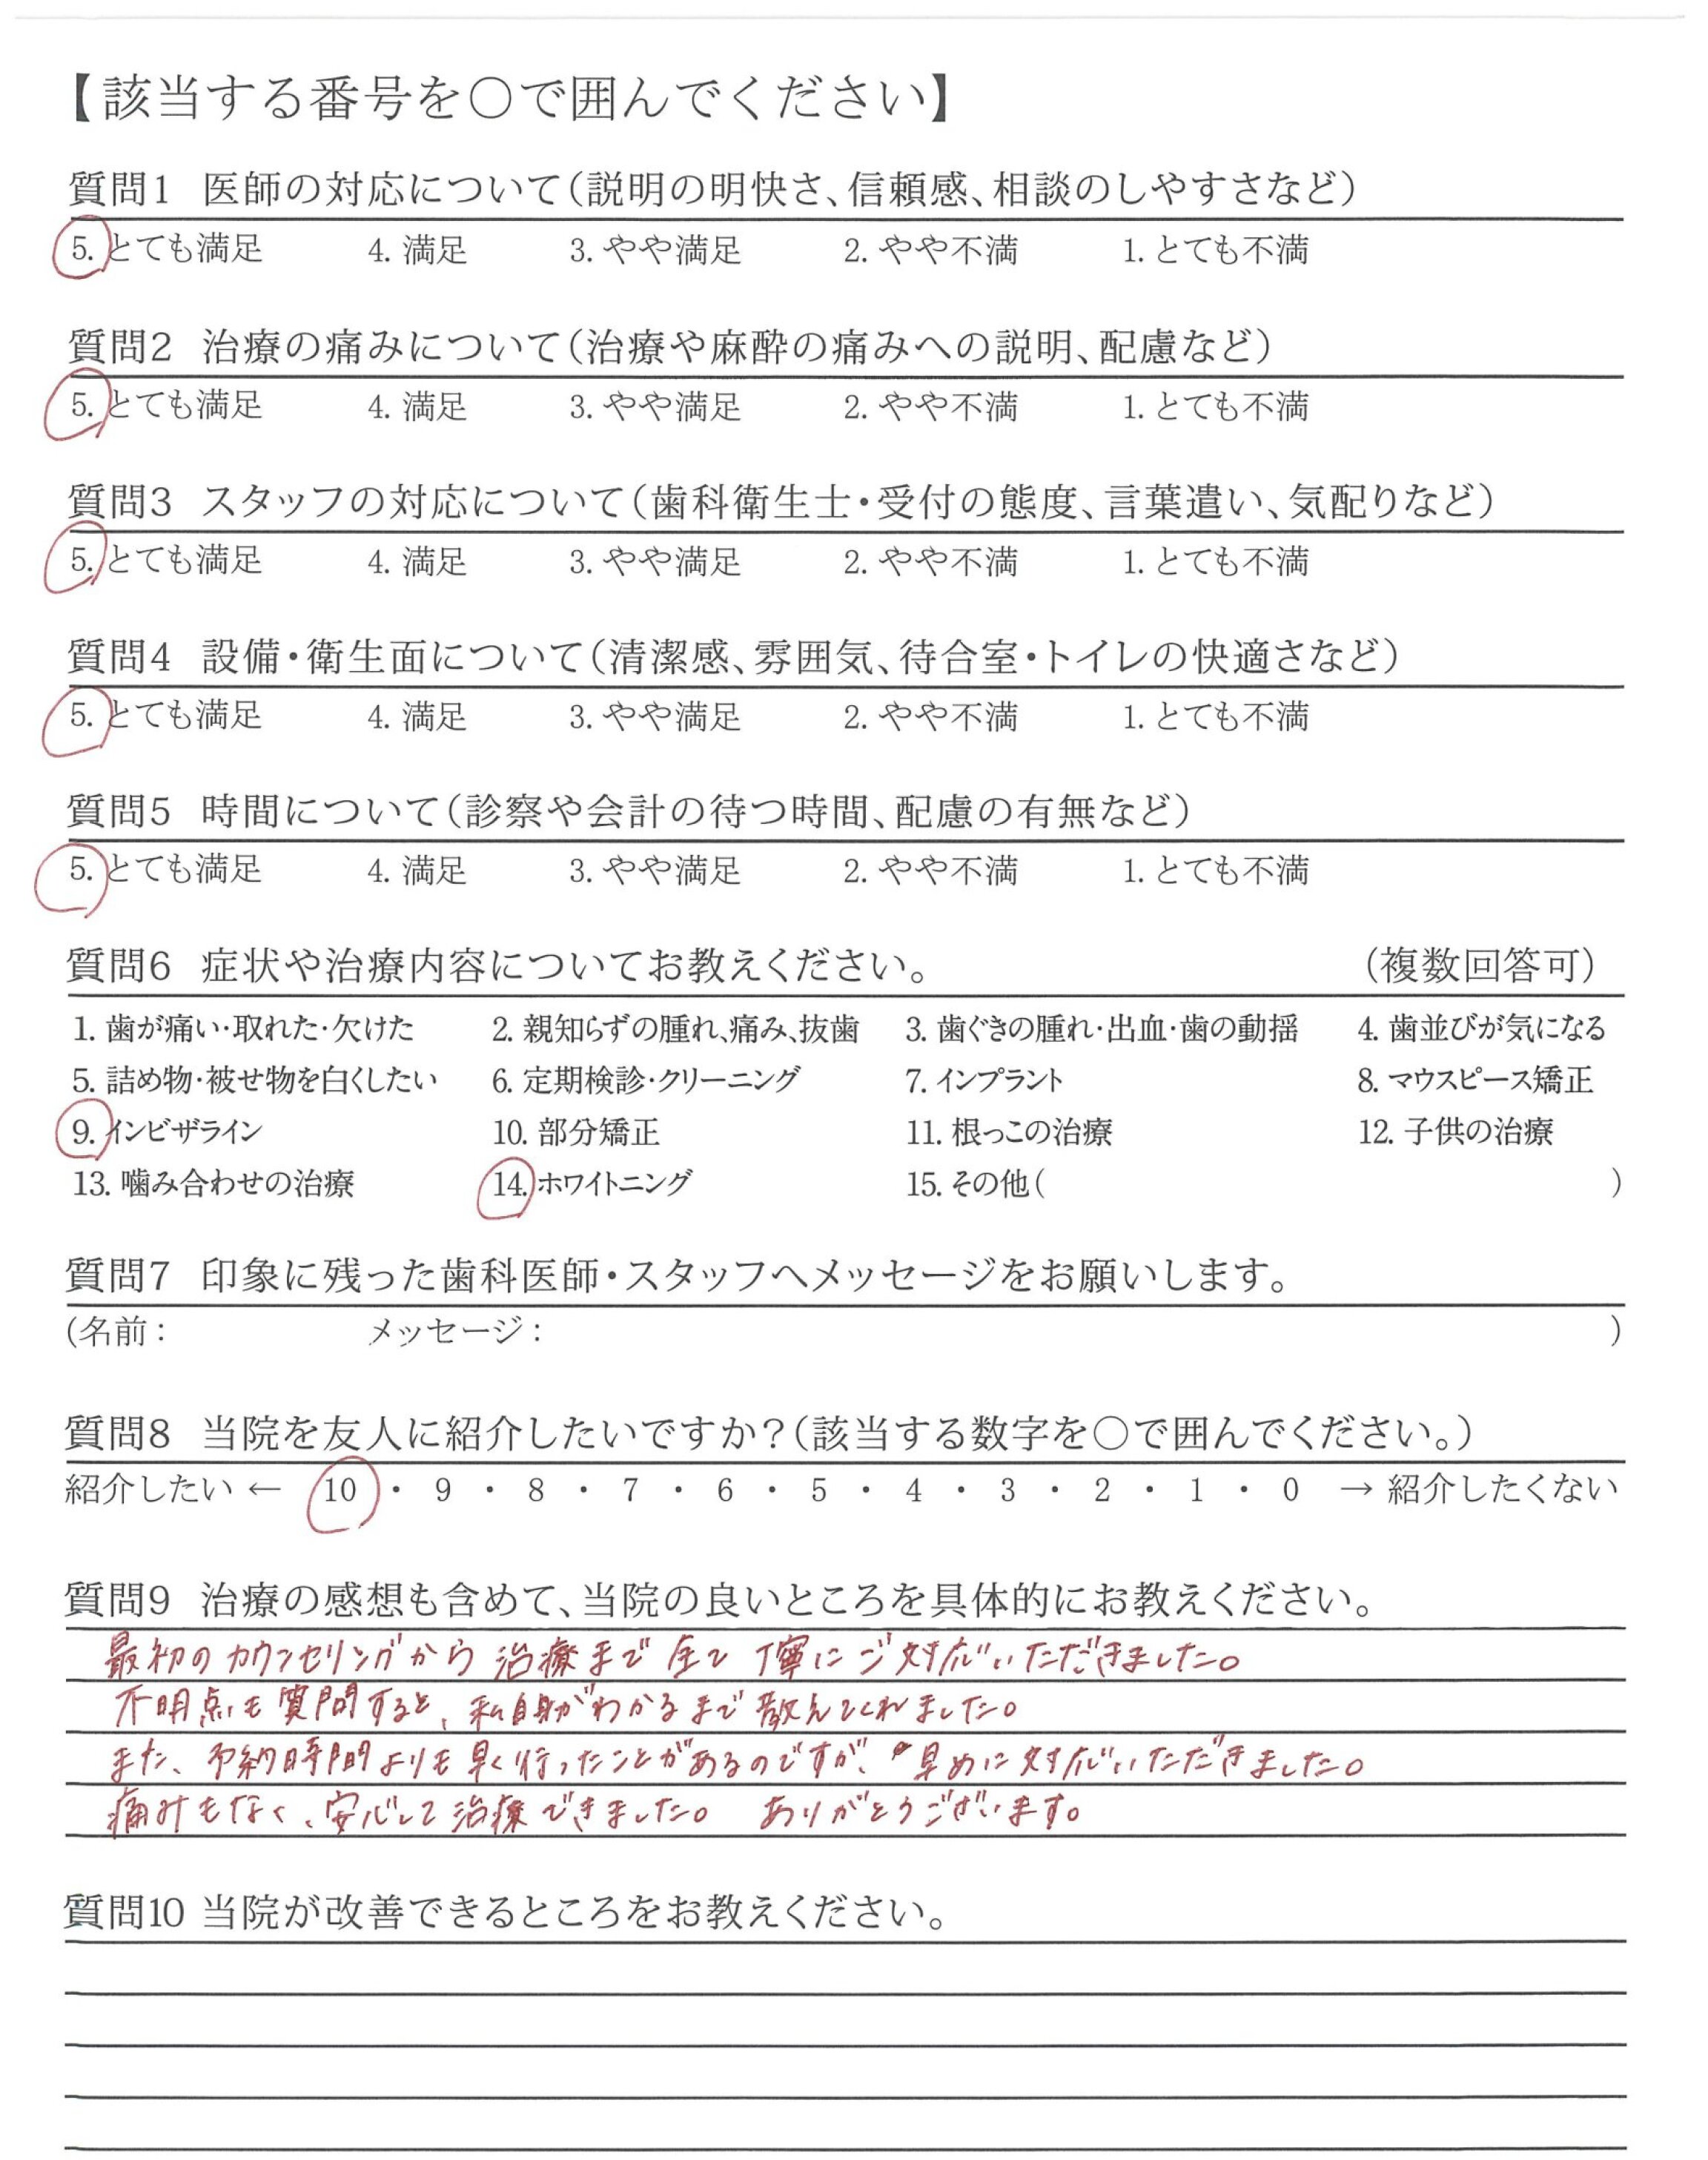 【該当する番号を○で囲んでください】
質問1 医師の対応について(説明の明快さ、信頼感、相談のしやすさなど)
5. とても満足 4. 満足 3. やや満足 2. やや不満 1. とても不満
質問2 治療の痛みについて(治療や麻酔の痛みへの説明、配慮など)
5. とても満足 4. 満足 3. やや満足 2. やや不満 1. とても不満
質問3 スタッフの対応について(歯科衛生士・受付の態度、言葉遣い、気配りなど)
5. とても満足 4. 満足 3. やや満足 2. やや不満 1. とても不満
質問4 設備・衛生面について(清潔感、雰囲気、待合室・トイレの快適さなど)
5. とても満足 4. 満足 3. やや満足 2. やや不満 1. とても不満
質問5 時間について(診察や会計の待つ時間、配慮の有無など)
5. とても満足 4. 満足 3. やや満足 2. やや不満 1. とても不満
質問6 症状や治療内容についてお教えください。 (複数回答可)
1. 歯が痛い・取れた・欠けた 2. 親知らずの腫れ、痛み、抜歯 3. 歯ぐきの腫れ・出血・歯の動揺 4. 歯並びが気になる
5. 詰め物・被せ物を白くしたい 6. 定期検診・クリーニング 7. インプラント 8. マウスピース矯正
9. インビザライン 10. 部分矯正 11. 根っこの治療 12. 子供の治療
13. 噛み合わせの治療 14. ホワイトニング 15. その他( )
質問7 印象に残った歯科医師・スタッフへメッセージをお願いします。
(名前: メッセージ: )
質問8 当院を友人に紹介したいですか?(該当する数字を○で囲んでください。)
紹介したい ← 10 ・ 9 ・ 8 ・ 7 ・ 6 ・ 5 ・ 4 ・ 3 ・ 2 ・ 1 ・ 0 → 紹介したくない
質問9 治療の感想も含めて、当院の良いところを具体的にお教えください。
最初のカウンセリングから治療まで全て丁寧にご対応いただきました。
不明点も質問すると、私自身がわかるまで教えてくれました。
また、予約時間よりも早く行ったことがあるのですが、早めに対応いただきました。
痛みもなく、安心して治療できました。 ありがとうございます。
質問10 当院が改善できるところをお教えください。